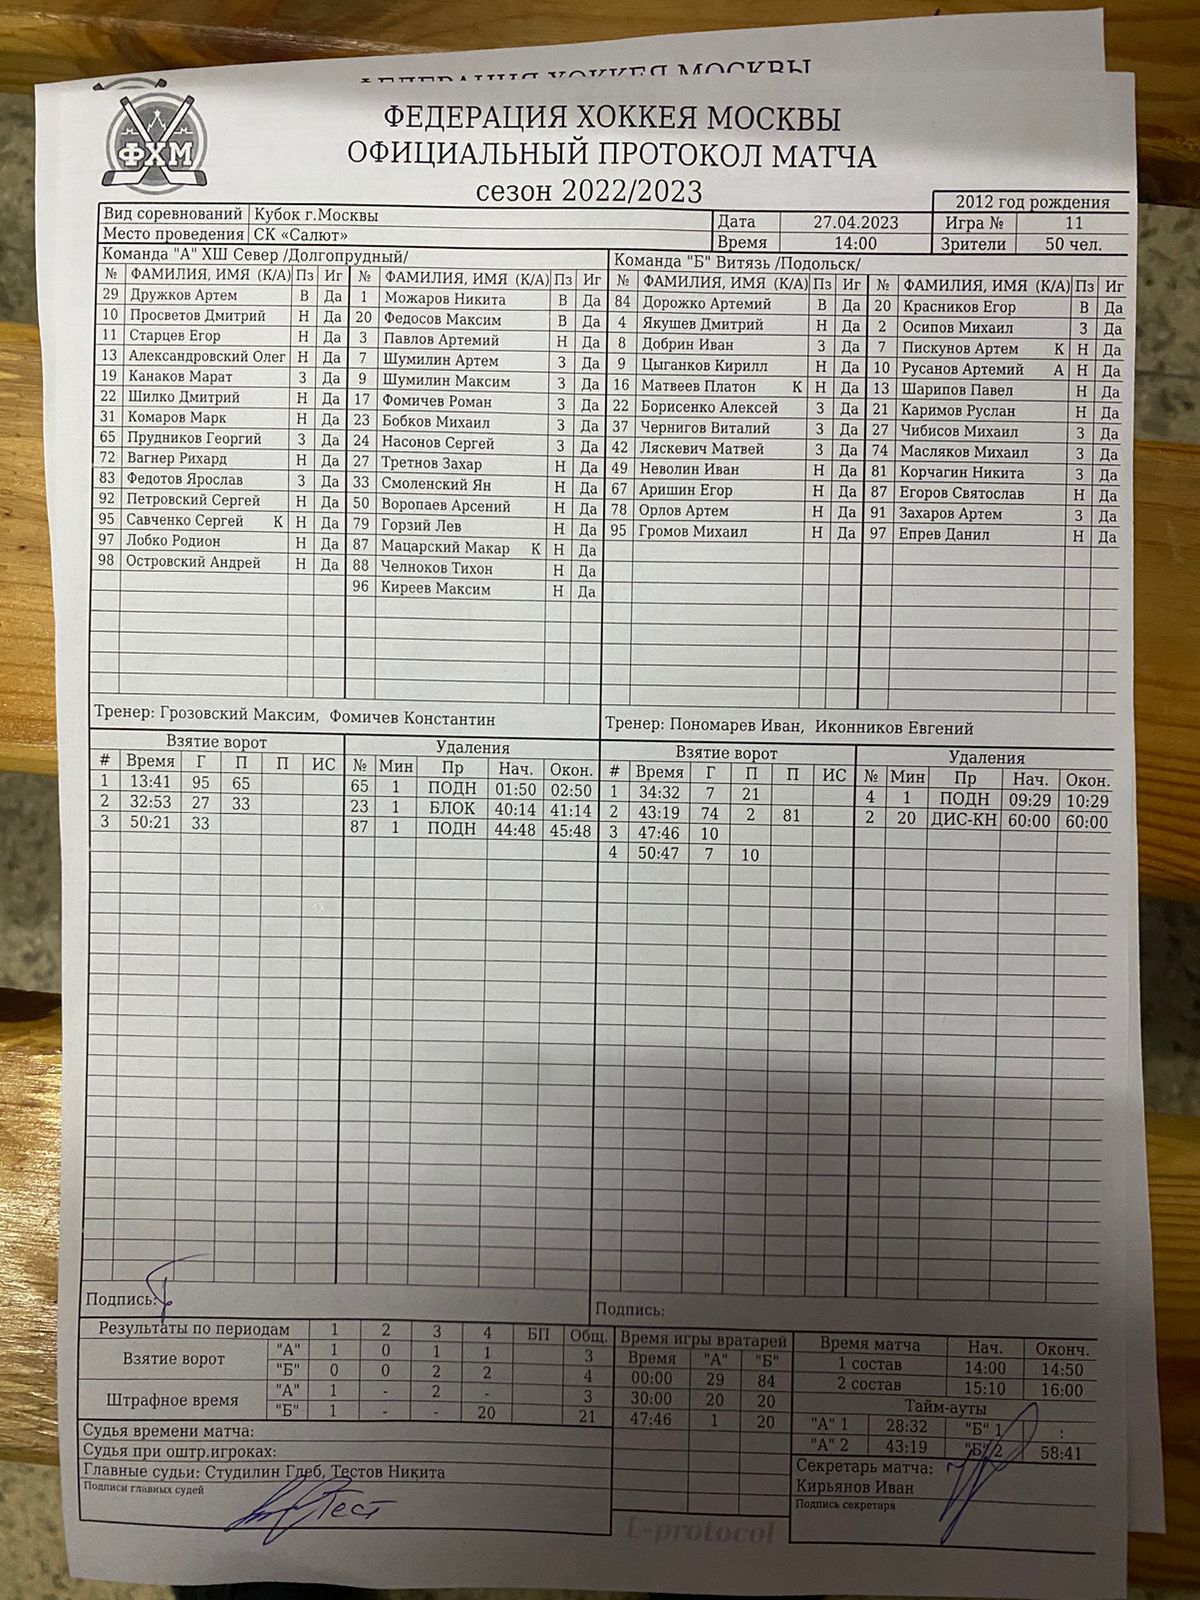 ФЕДЕРАЦИЯ ХОККЕЯ МОСКВЫ
ФХМ
ФЕДЕРАЦИЯ ХОККЕЯ МОСКВЫ
ОФИЦИАЛЬНЫЙ ПРОТОКОЛ МАТЧА
сезон 2022/2023
2012 год рождения
Вид соревнований Кубок г.Москвы Дата 27.04.2023 Игра № 11
Место проведения СК «Салют» Время 14:00 Зрители 50 чел.
Команда "А" ХШ Север /Долгопрудный/ Команда "Б" Витязь /Подольск/
№ ФАМИЛИЯ, ИМЯ (К/А) Пз Иг № ФАМИЛИЯ, ИМЯ (К/А) Пз Иг № ФАМИЛИЯ, ИМЯ (К/А) Пз Иг № ФАМИЛИЯ, ИМЯ (К/А) Пз Иг
29 Дружков Артем В Да 1 Можаров Никита В Да 84 Дорожко Артемий В Да 20 Красников Егор В Да
10 Просветов Дмитрий Н Да 20 Федосов Максим В Да 4 Якушев Дмитрий Н Да 2 Осипов Михаил З Да
11 Старцев Егор Н Да 3 Павлов Артемий Н Да 8 Добрин Иван З Да 7 Пискунов Артем К Н Да
13 Александровский Олег Н Да 7 Шумилин Артем З Да 9 Цыганков Кирилл Н Да 10 Русанов Артемий А Н Да
19 Канаков Марат З Да 9 Шумилин Максим З Да 16 Матвеев Платон К Н Да 13 Шарипов Павел Н Да
22 Шилко Дмитрий Н Да 17 Фомичев Роман З Да 22 Борисенко Алексей З Да 21 Каримов Руслан Н Да
31 Комаров Марк Н Да 23 Бобков Михаил З Да 37 Чернигов Виталий З Да 27 Чибисов Михаил З Да
65 Прудников Георгий З Да 24 Насонов Сергей З Да 42 Ляскевич Матвей З Да 74 Масляков Михаил З Да
72 Вагнер Рихард Н Да 27 Третнов Захар Н Да 49 Неволин Иван Н Да 81 Корчагин Никита З Да
83 Федотов Ярослав З Да 33 Смоленский Ян Н Да 67 Аришин Егор Н Да 87 Егоров Святослав Н Да
92 Петровский Сергей Н Да 50 Воропаев Арсений Н Да 78 Орлов Артем Н Да 91 Захаров Артем З Да
95 Савченко Сергей К Н Да 79 Горзий Лев Н Да 95 Громов Михаил Н Да 97 Епрев Данил Н Да
97 Лобко Родион Н Да 87 Мацарский Макар К Н Да
98 Островский Андрей Н Да 88 Челноков Тихон Н Да
96 Киреев Максим Н Да
Тренер: Грозовский Максим, Фомичев Константин Тренер: Пономарев Иван, Иконников Евгений
Взятие ворот Удаления Взятие ворот Удаления
# Время Г П П ИС № Мин Пр Нач. Окон. # Время Г П П ИС № Мин Пр Нач. Окон.
1 13:41 95 65 65 1 ПОДН 01:50 02:50 1 34:32 7 21 4 1 ПОДН 09:29 10:29
2 32:53 27 33 23 1 БЛОК 40:14 41:14 2 43:19 74 2 81 2 20 ДИС-КН 60:00 60:00
3 50:21 33 87 1 ПОДН 44:48 45:48 3 47:46 10
4 50:47 7 10
Подпись: Подпись:
Результаты по периодам 1 2 3 4 БП Общ. Время игры вратарей Время матча Нач. Оконч.
Взятие ворот "А" 1 0 1 1 3 Время "А" "Б" 1 состав 14:00 14:50
"Б" 0 0 2 2 4 00:00 29 84 2 состав 15:10 16:00
Штрафное время "А" 1 - 2 - 3 30:00 20 20 Тайм-ауты
"Б" 1 - - 20 21 47:46 1 20 "А" 1 28:32 "Б" 1 :
Судья времени матча: "А" 2 43:19 "Б" 2 58:41
Судья при оштр.игроках: Секретарь матча:
Главные судьи: Студилин Глеб, Тестов Никита Кирьянов Иван
Подписи главных судей Подпись секретаря
Тест
L-protocol